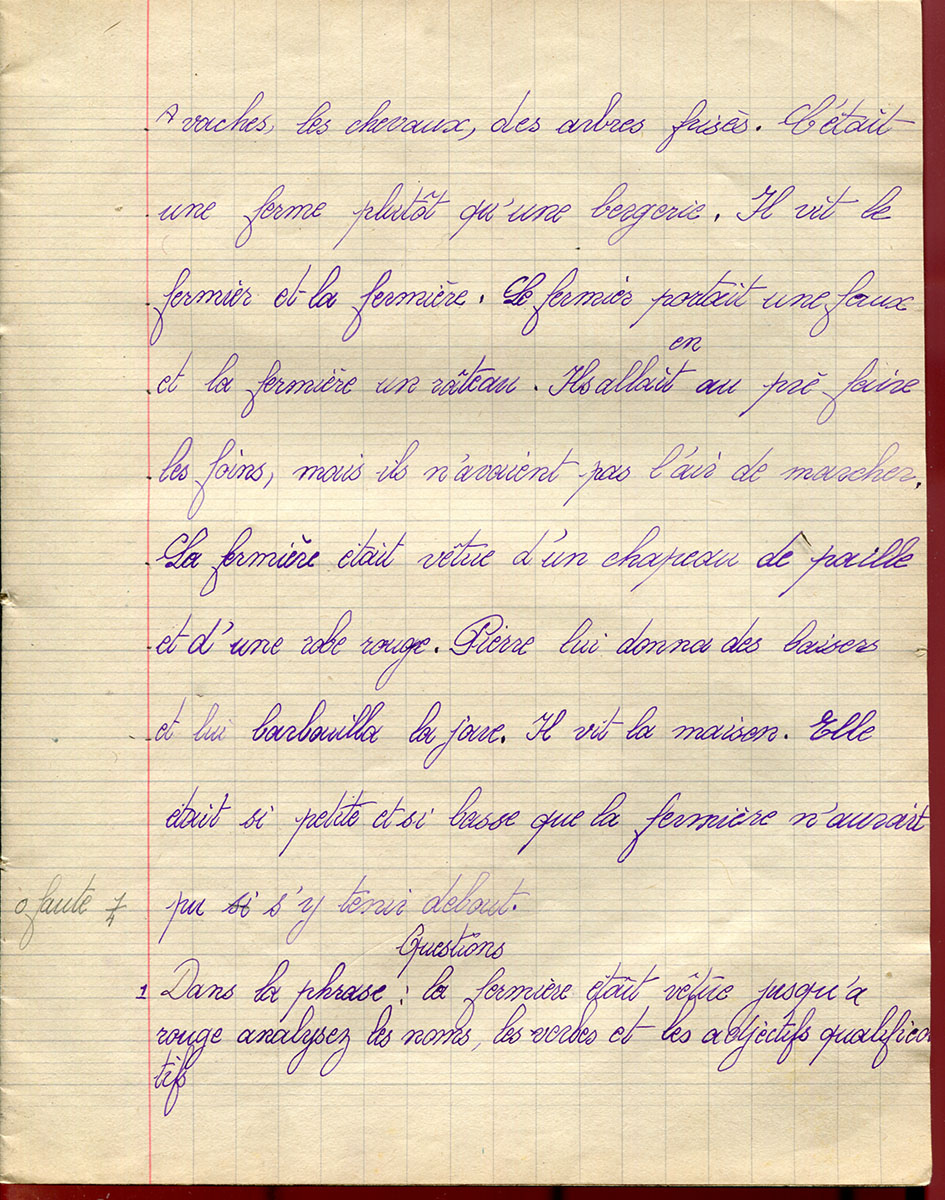 vaches, les chevaux, des arbres frisés. C'était
une ferme plutôt qu'une bergerie. Il vit le
fermier et la fermière. Le fermier portait une faux
en
et la fermière un râteau. Ils allait au pré faire
les foins, mais ils n'avaient pas l'air de marcher.
La fermière était vêtue d'un chapeau de paille
et d'une robe rouge. Pierre lui donna des baisers
et lui barbouilla la joue. Il vit la maison. Elle
était si petite et si basse que la fermière n'aurait
0 faute pu si s'y tenir debout.
Questions
1 Dans la phrase : la fermière était vêtue jusqu'a
rouge analysez les noms, les verbes et les adjectifs qualifica
tifs